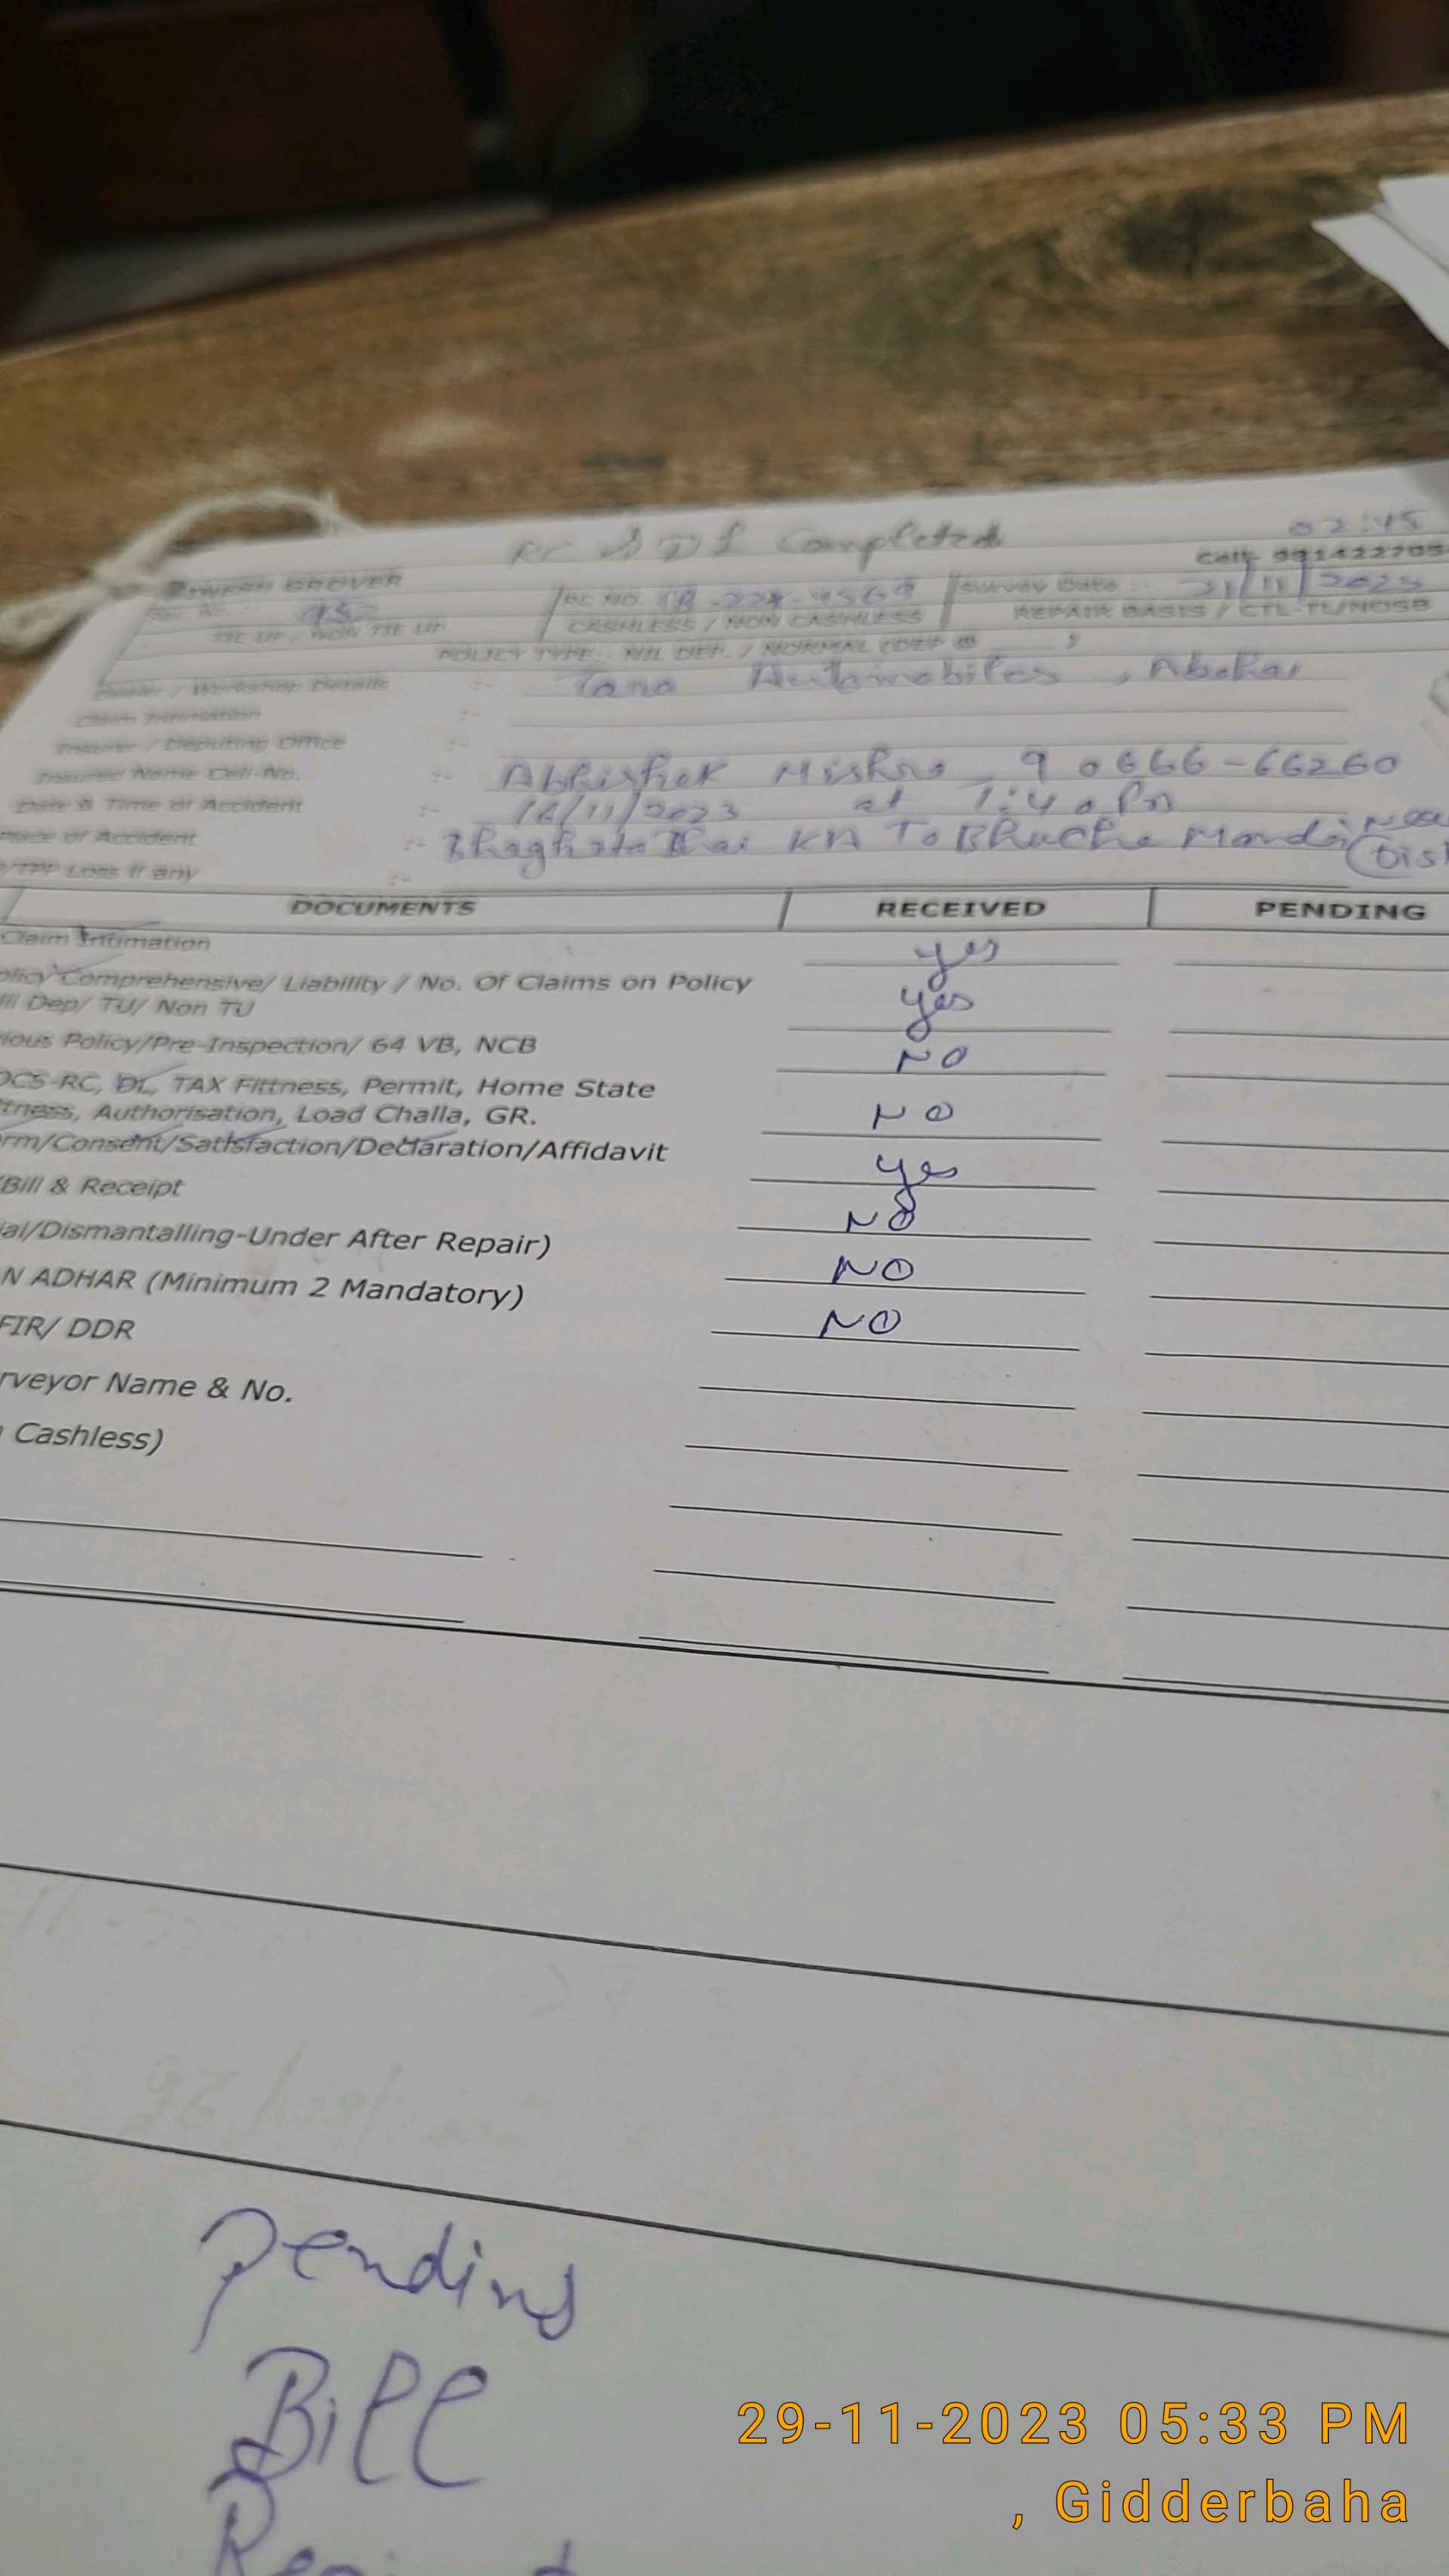 RC & DL Completed
02:45
DINESH GROVER
Cell- 991422705
RC NO.
Survey Date :- 21/11/2023
TIE UP / NON TIE UP
CASHLESS / NON CASHLESS
REPAIR BASIS / CTL-TL/NOSB
POLICY TYPE:- NIL DEP. / NORMAL (DEP @
Dealer / Workshop Details :- Tara Automobiles , Abohar
Claim Intimation :-
Insurer / Deputing Office :-
Insured Name Cell-No. :- Abhishek Mishra , 90666-66260
Date & Time of Accident :- /11/2023 at 1:40 Pm
Place of Accident :- Bhai KA To Bhucho Mandi
/TPP Loss if any :-
DOCUMENTS RECEIVED PENDING
Claim Intimation yes
olicy Comprehensive/ Liability / No. Of Claims on Policy
il Dep/ TU/ Non TU yes
ious Policy/Pre-Inspection/ 64 VB, NCB NO
OCS-RC, DL, TAX Fittness, Permit, Home State
ttness, Authorisation, Load Challa, GR. NO
rm/Consent/Satisfaction/Declaration/Affidavit yes
Bill & Receipt NO
ial/Dismantalling-Under After Repair) NO
N ADHAR (Minimum 2 Mandatory) NO
FIR/ DDR
rveyor Name & No.
Cashless)
pending
Bill
29-11-2023 05:33 PM
, Gidderbaha